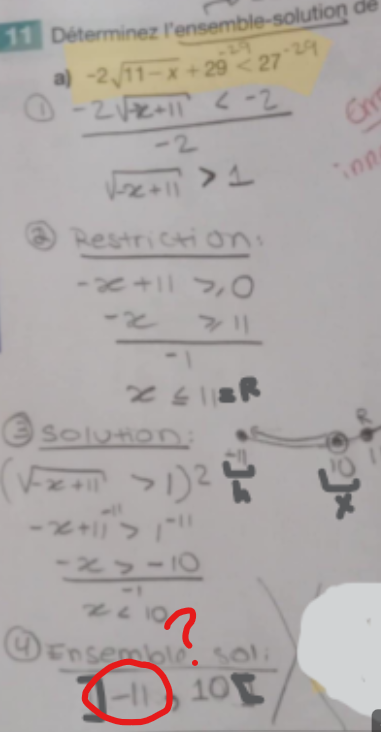 11 Déterminez l'ensemble-solution de
a) -2√11-x + 29 -29 < 27 -29
① -2√-x+11 < -2
-2
√-x+11 > 1
② Restriction:
-x+11 ≥ 0
-x ≥ 11
-1
x ≤ 11 = R
③ Solution:
(√-x+11 > 1)²
-x+11 -11 > 1 -11
-x > -10
-1
x < 10
-11 10 R
h x
?
④ Ensemble sol:
]-11, 10[